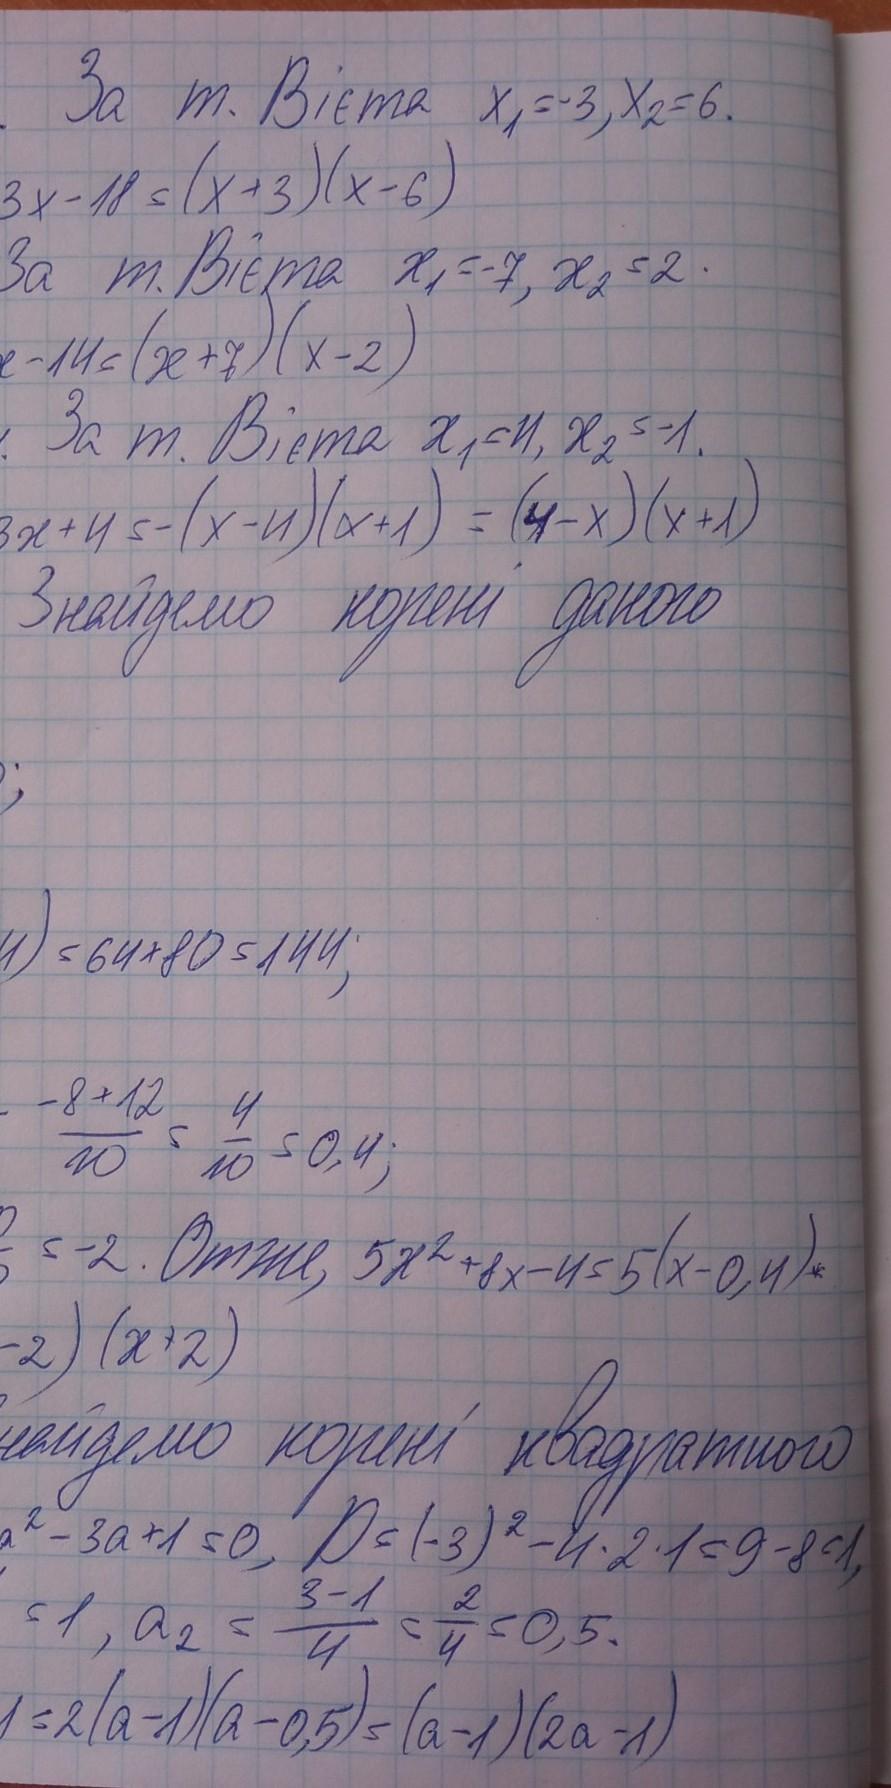 . За т. Вієта x₁=-3, x₂=6.
3x-18=(x+3)(x-6)
За т. Вієта x₁=-7, x₂=2.
x-14=(x+7)(x-2)
. За т. Вієта x₁=4, x₂=-1.
3x+4=-(x-4)(x+1)=(4-x)(x+1)
Знайдемо корені даного
;
4)=64+80=144;
-8+12/10=4/10=0,4;
=-2. Отже, 5x²+8x-4=5(x-0,4)*
-2)(x+2)
найдемо корені квадратного
a²-3a+1=0, D=(-3)²-4·2·1=9-8=1,
=1, a₂=3-1/4=2/4=0,5.
1=2(a-1)(a-0,5)=(a-1)(2a-1)